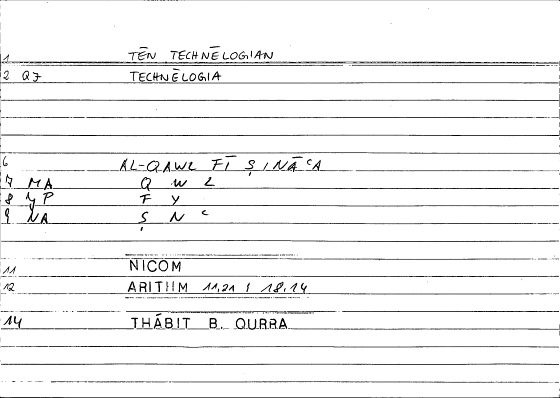 1 TĒN TECHNĒLOGIAN
2 QJ TECHNĒLOGIA
6 AL-QAWL FĪ ṢINĀʿA
7 MA Q W L
8 YP F Y
9 NA Ṣ N ʿ
11 NICOM
12 ARITHM 11,21 ; 18,14
14 THĀBIT B. QURRA